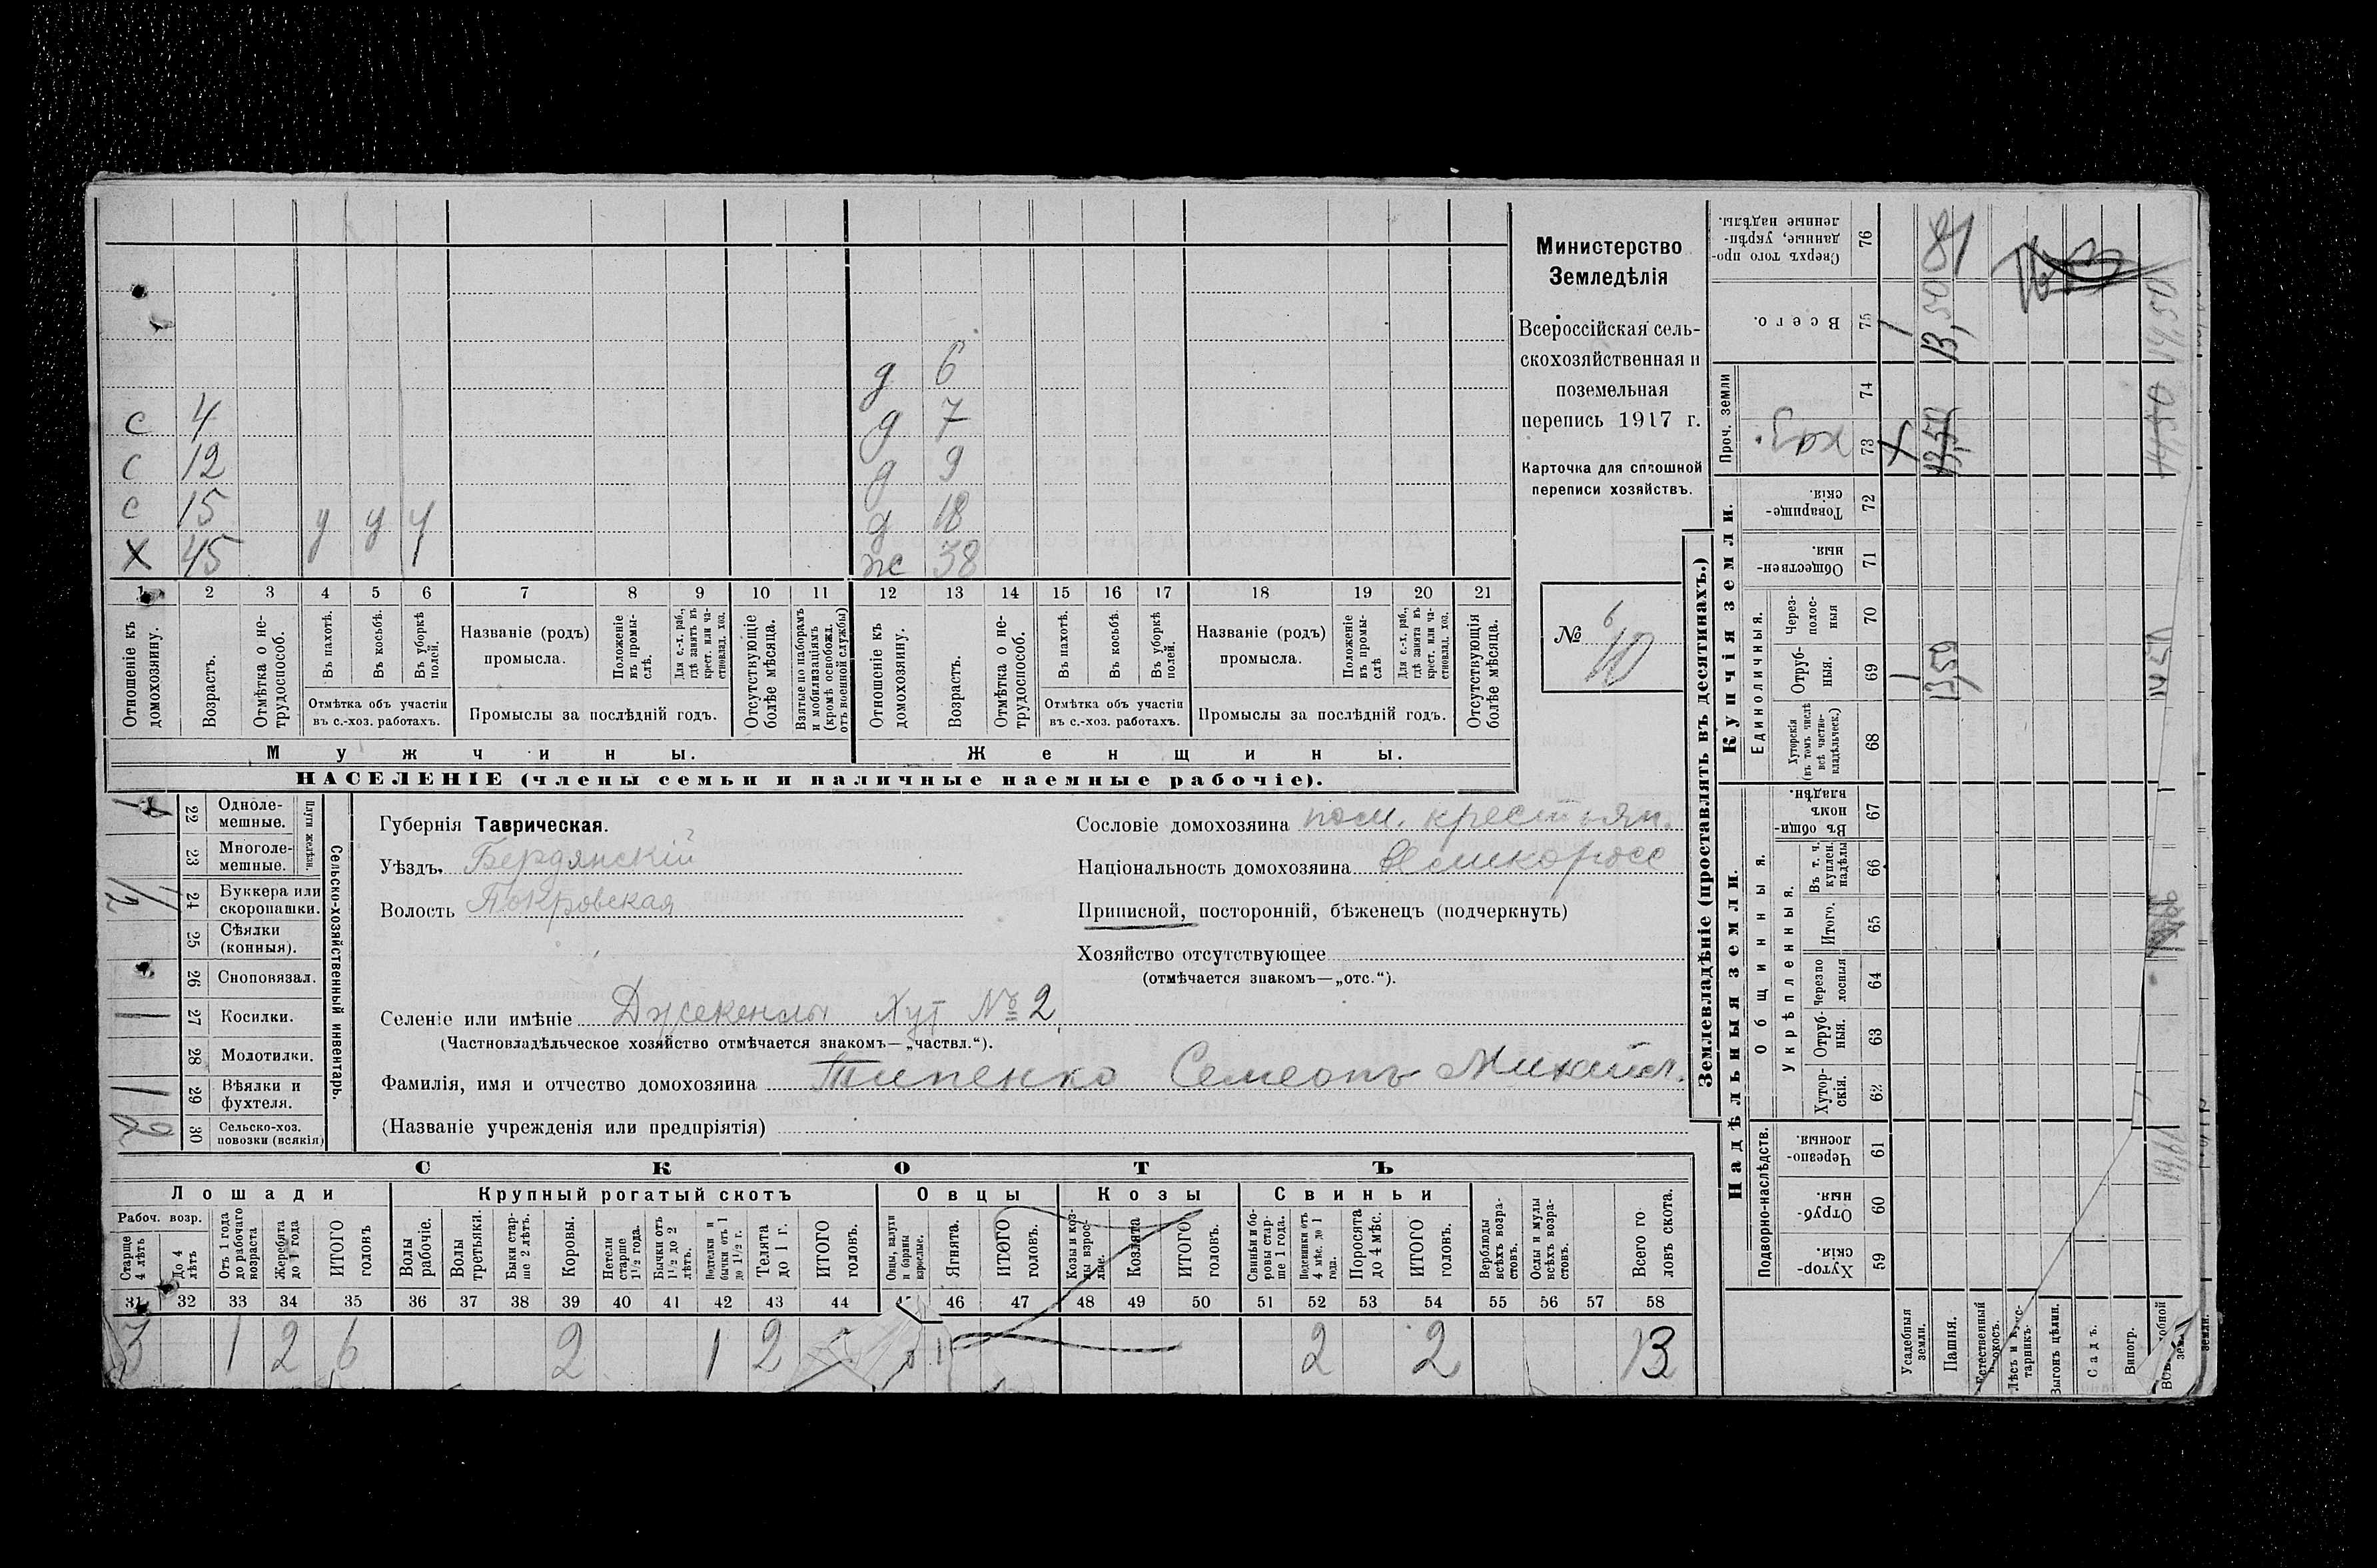 Министерство
Земледѣлія
Всероссійская сель-
скохозяйственная и
поземельная
перепись 1917 г.
Карточка для сплошной
переписи хозяйствъ.
№ 6
10
д 6
с 4 д 7
с 12 д 9
с 15 д 18
Х 45 у у у ж 38
1 2 3 4 5 6 7 8 9 10 11 12 13 14 15 16 17 18 19 20 21
Отношеніе къ домохозяину.
Возрастъ.
Отмѣтка о не-трудоспособ.
Въ пахотѣ.
Въ косьбѣ.
Въ уборкѣ полей.
Отмѣтка объ участіи
въ с.-хоз. работахъ.
Названіе (родъ)
промысла.
Положеніе въ промы-слѣ.
Для с.-х. раб., гдѣ занятъ въ крест. или ча-стновлад. хоз.
Промыслы за послѣдній годъ.
Отсутствующіе болѣе мѣсяца.
Взятые по наборамъ и мобилизаціямъ (кромѣ освобожд. отъ военной службы)
Отношеніе къ домохозяину.
Возрастъ.
Отмѣтка о не-трудоспособ.
Въ пахотѣ.
Въ косьбѣ.
Въ уборкѣ полей.
Отмѣтка объ участіи
въ с.-хоз. работахъ.
Названіе (родъ)
промысла.
Положеніе въ промы-слѣ
Для с.-х. раб., гдѣ занята въ крест. или ча-стновлад. хоз.
Промыслы за послѣдній годъ.
Отсутствующія болѣе мѣсяца.
Мужчины. Женщины.
НАСЕЛЕНІЕ (члены семьи и наличные наемные рабочіе).
Сельско-хозяйственный инвентарь.
Плуги желѣзн.
1 22 Одноле-мешные.
23 Многоле-мешные.
24 Буккера или скоропашки.
25 Сѣялки (конныя).
26 Сноповязал.
1 27 Косилки.
28 Молотилки.
1 29 Вѣялки и фухтеля.
2 30 Сельско-хоз. повозки (всякія)
Губернія Таврическая.
Уѣздъ. Бердянскій
Волость Покровская
Сословіе домохозяина пос. крестьян.
Національность домохозяина великоросс
Приписной, посторонній, бѣженецъ (подчеркнуть)
Хозяйство отсутствующее
(отмѣчается знакомъ—„отс.“).
Селеніе или имѣніе Джекенлы Хут №2
(Частновладѣльческое хозяйство отмѣчается знакомъ—„частвл.“).
Фамилія, имя и отчество домохозяина Типенко Семеонъ Михайл.
(Названіе учрежденія или предпріятія)
СКОТЪ
Лошади Крупный рогатый скотъ Овцы Козы Свиньи
Рабоч. возр.
Старше 4 лѣтъ
До 4 лѣтъ
Отъ 1 года до рабочаго возраста
Жеребята до 1 года
ИТОГО головъ
Волы рабочіе.
Волы третьяки.
Быки стар-ше 2 лѣтъ.
Коровы.
Нетели старше 1 1/2 года.
Бычки отъ 1 1/2 до 2 лѣтъ.
Подтелки и бычки отъ 1 до 1 1/2 г.
Телята до 1 г.
ИТОГО головъ.
Овцы, валухи и бараны взрослые.
Ягнята.
ИТОГО головъ.
Козы и коз-лы взрос-лые.
Козлята
ИТОГО головъ.
Свиньи и бо-ровы стар-ше 1 года.
Подсвинки отъ 4 мѣс. до 1 года.
Поросята до 4 мѣс.
ИТОГО головъ.
Верблюды всѣхъ возра-стовъ.
Ослы и мулы всѣхъ возра-стовъ.
Всего го-ловъ скота.
31 32 33 34 35 36 37 38 39 40 41 42 43 44 46 47 48 49 50 51 52 53 54 55 56 57 58
3 1 2 6 2 1 2 2 2 13
Землевладѣніе (проставлять въ десятинахъ.)
Надѣльныя земли.
Купчія земли.
Подворно-наслѣдств.
Общинныя.
Укрѣпленныя.
Единоличныя.
Проч. земли
59 Хутор-скія.
60 Отруб-ныя.
61 Черезпо-лосныя.
62 Хутор-скія.
63 Отруб-ныя.
64 Черезпо лосныя
65 Итого.
66 Въ т. ч. куплен. надѣлы
67 Въ общин-номъ владѣн.
68 Хуторскія (въ томъ числѣ всѣ частно-владѣльческ.)
69 Отруб-ныя.
70 Через-полос-ныя
71 Обществен-ныя.
72 Товарище-скія.
73 74
75 Всего.
76 Сверхъ того про-данные, укрѣп-ленные надѣлы.
Усадебныя земли. 1 1
Пашня. 13,50 13,50 13,50 81
Естественный покосъ.
Лѣсъ и кус-тарникъ.
Выгонъ цѣлин.
Садъ.
Виногр.
14,50 14,50 14,50
земли.